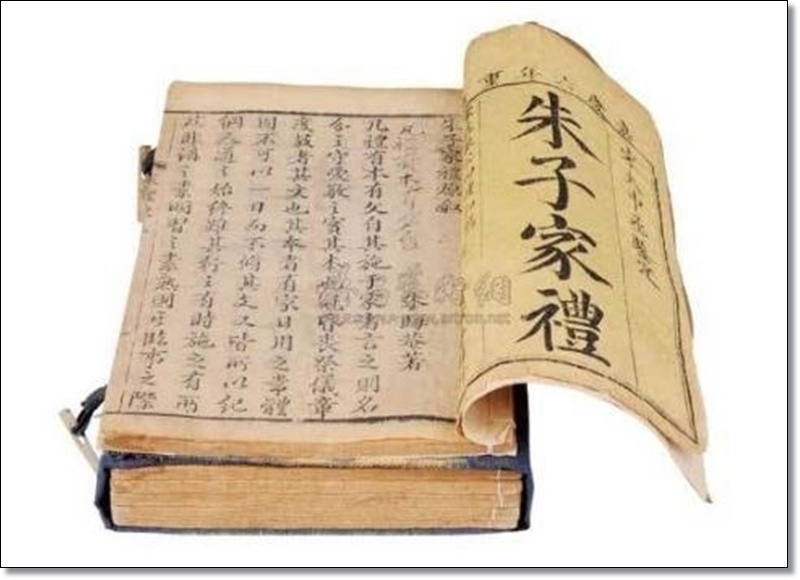 朱子家禮
朱子家禮原叙
朱晦菴著
凡禮有本有文自其施于家者言之則名
分之守愛敬之實其本也冠昏喪祭儀章
度數者其文也其本者有家日用之常體
固不可以一日而不脩其文又皆所以紀
綱人道之始終雖其行之有時施之有所
然非講之素明習之素熟則其臨事之際